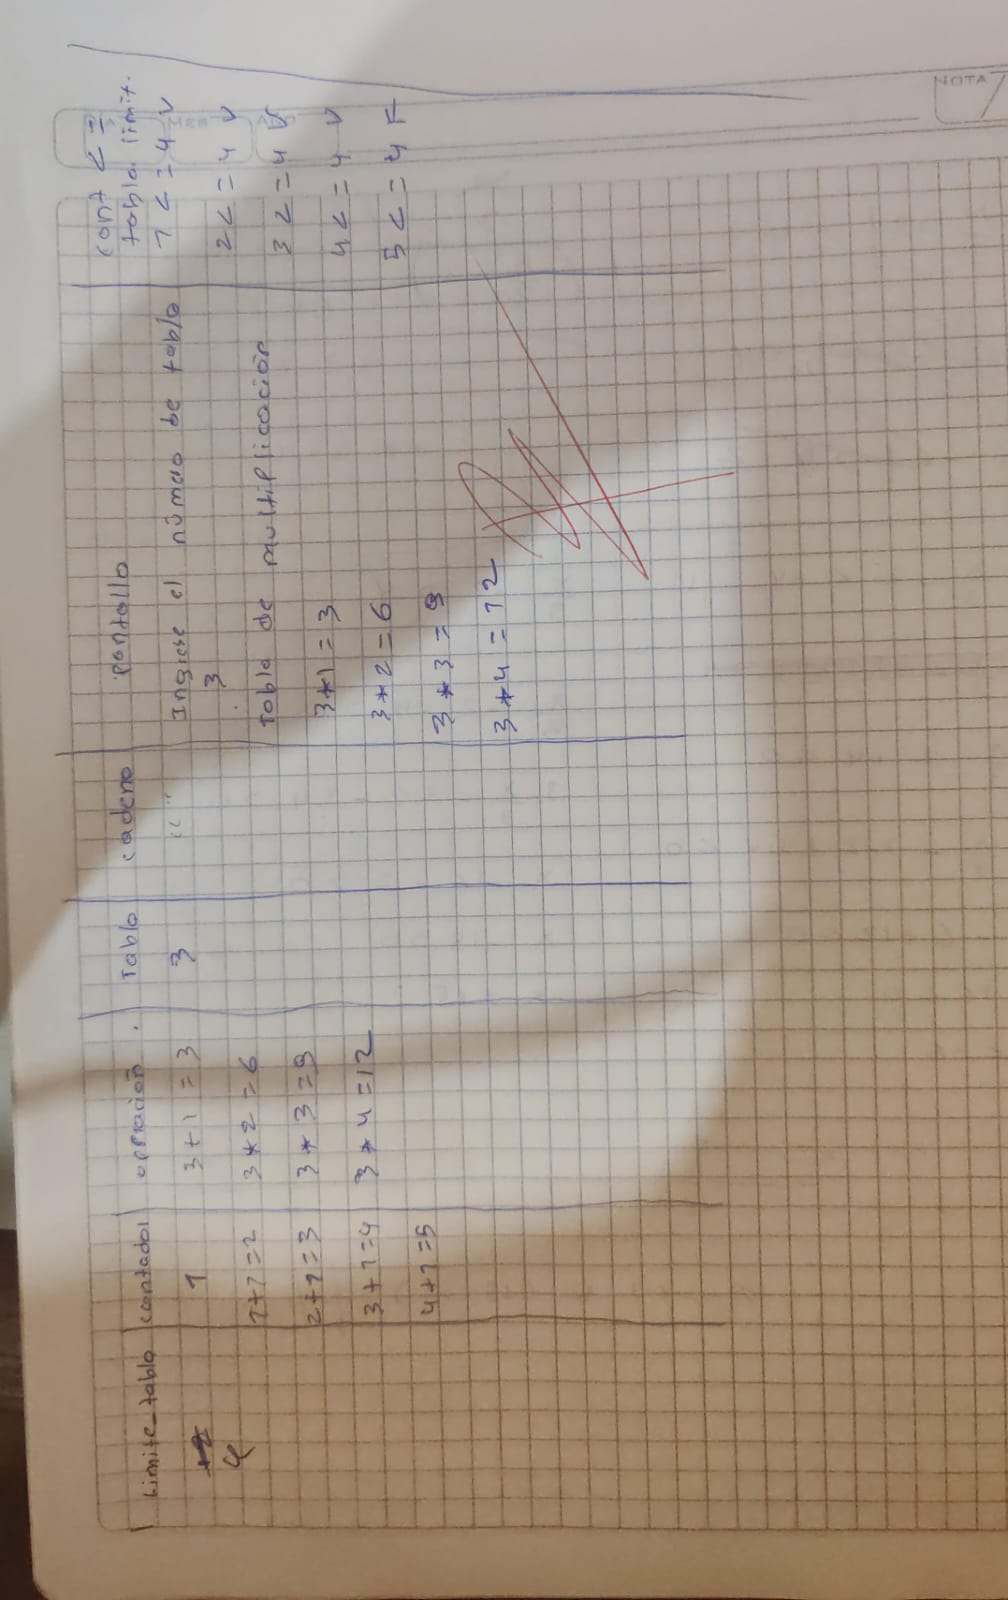 Limite_tabla contador operación . Tabla cadena pantalla cont <= tabla limit.
4 1 3+1=3 3 " " Ingrese el número de tabla 1<=4 V
3
1+1=2 3*2=6 Tabla de multiplicación 2<=4 V
2+1=3 3*3=9 3*1=3 3<=4 V
3+1=4 3*4=12 3*2=6 4<=4 V
4+1=5 3*3=9 5<=4 F
3*4=12
NOTA